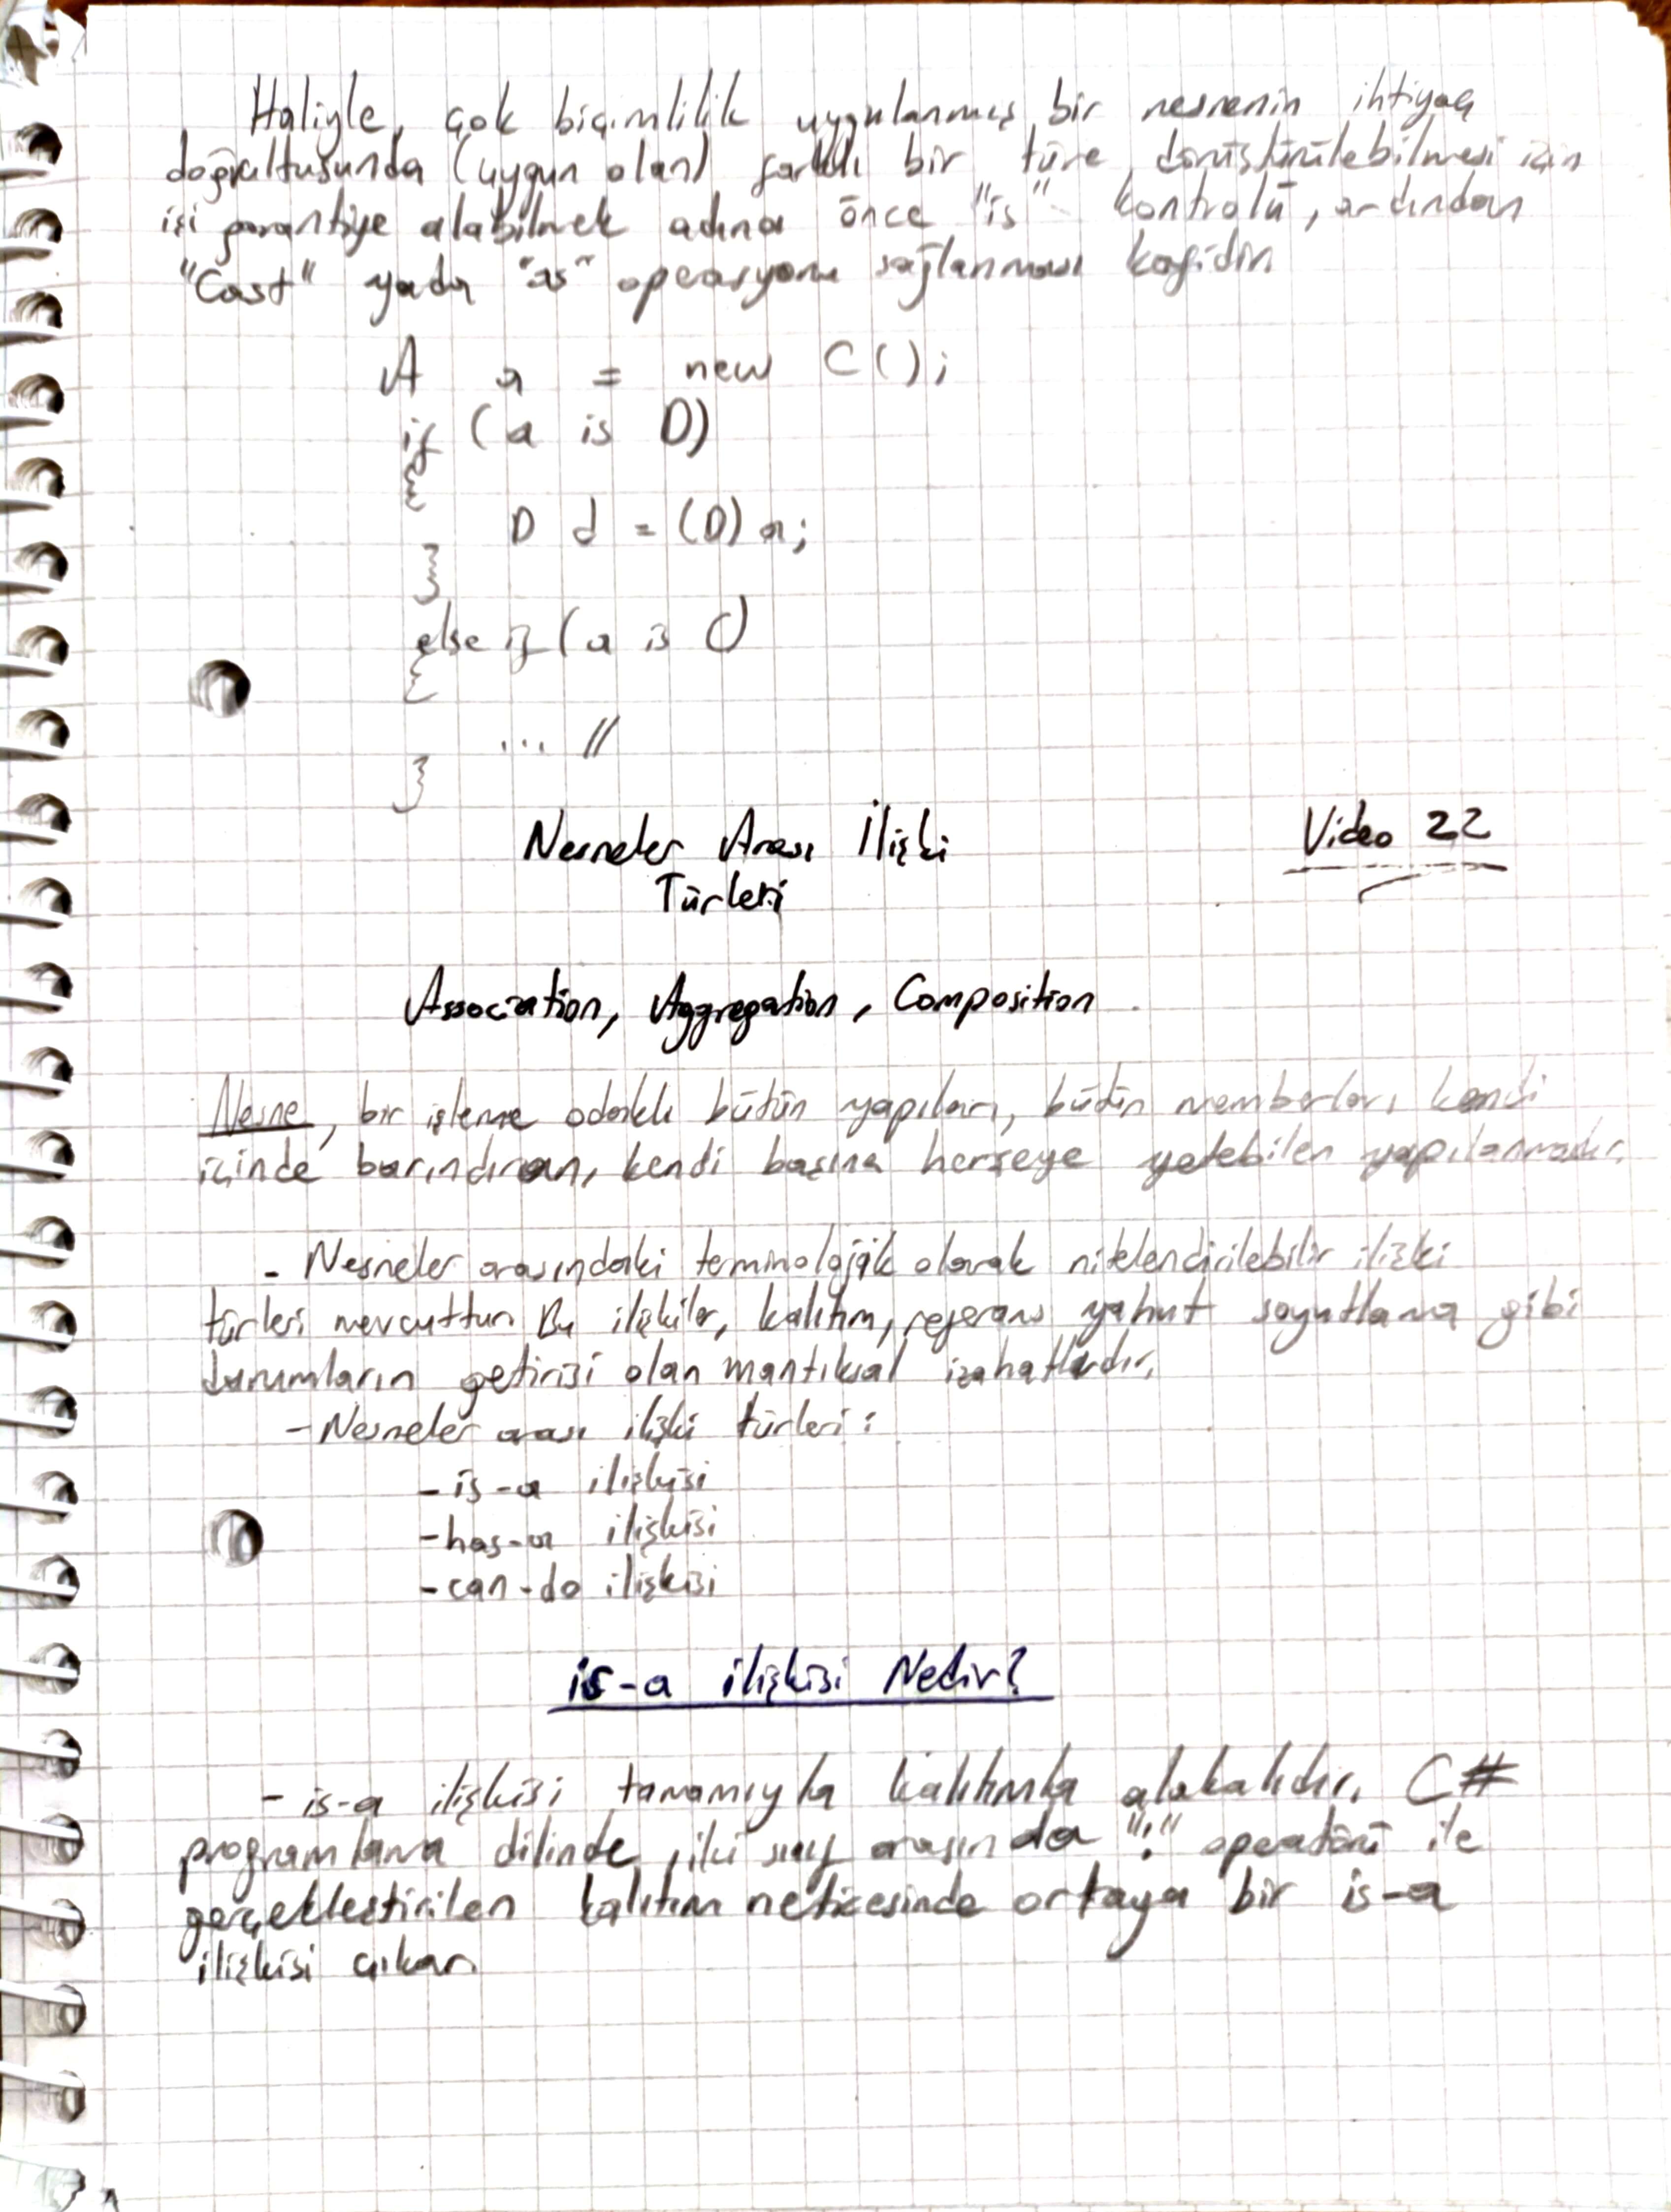 Haliyle, çok biçimlilik uygulanmış bir nesnenin ihtiyaç
doğrultusunda (uygun olan) farklı bir türe dönüştürülebilmesi için
işi garantiye alabilmek adına önce "is" kontrolü, ardından
"Cast" yada "as" operasyonu sağlanması kafidir.
A a = new C();
if (a is D)
{
D d = (D) a;
}
else if (a is C)
{
... //
}
Nesneler Arası İlişki
Türleri
Video 22
Association, Aggregation, Composition
Nesne, bir işleme odaklı bütün yapıları, bütün memberları kendi
içinde barındıran, kendi başına herşeye yetebilen yapılanmadır.
- Nesneler arasındaki terminolojik olarak nitelendirilebilir ilişki
türleri mevcuttur. Bu ilişkiler, kalıtım, referans yahut soyutlama gibi
durumların getirisi olan mantıksal izahatlardır.
- Nesneler arası ilişki türleri:
- is-a ilişkisi
- has-a ilişkisi
- can-do ilişkisi
is-a ilişkisi Nedir?
- is-a ilişkisi tamamıyla kalıtımla alakalıdır. C#
programlama dilinde, iki sınıf arasında ":" operatörü ile
gerçekleştirilen kalıtım neticesinde ortaya bir is-a
ilişkisi çıkar.